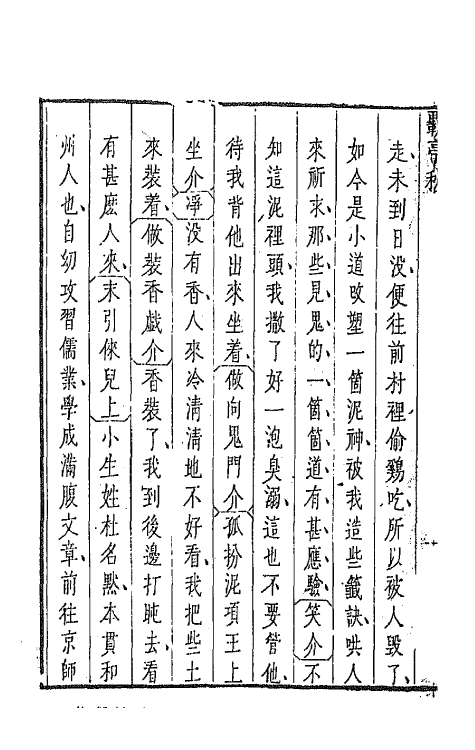 走未到日没便往前村裡偷鷄吃、所以被人毀了、
如今是小道改塑一箇泥神、被我造些籤訣、哄人
來祈求、那些見鬼的、一箇箇道有甚應驗、笑介不
知這泥裡頭、我撒了好一泡臭溺、這也不要管他、
待我背他出來坐着、做向鬼門介孤扮泥項王上
坐介淨没有香人來冷清清地不好看、我把些土
來裝着做裝香戲介香裝了、我到後邊打盹去、看
有甚麽人來、末引倈兒上小生姓杜名黙、本貫和
州人也、自幼攻習儒業、學成滿腹文章、前往京師